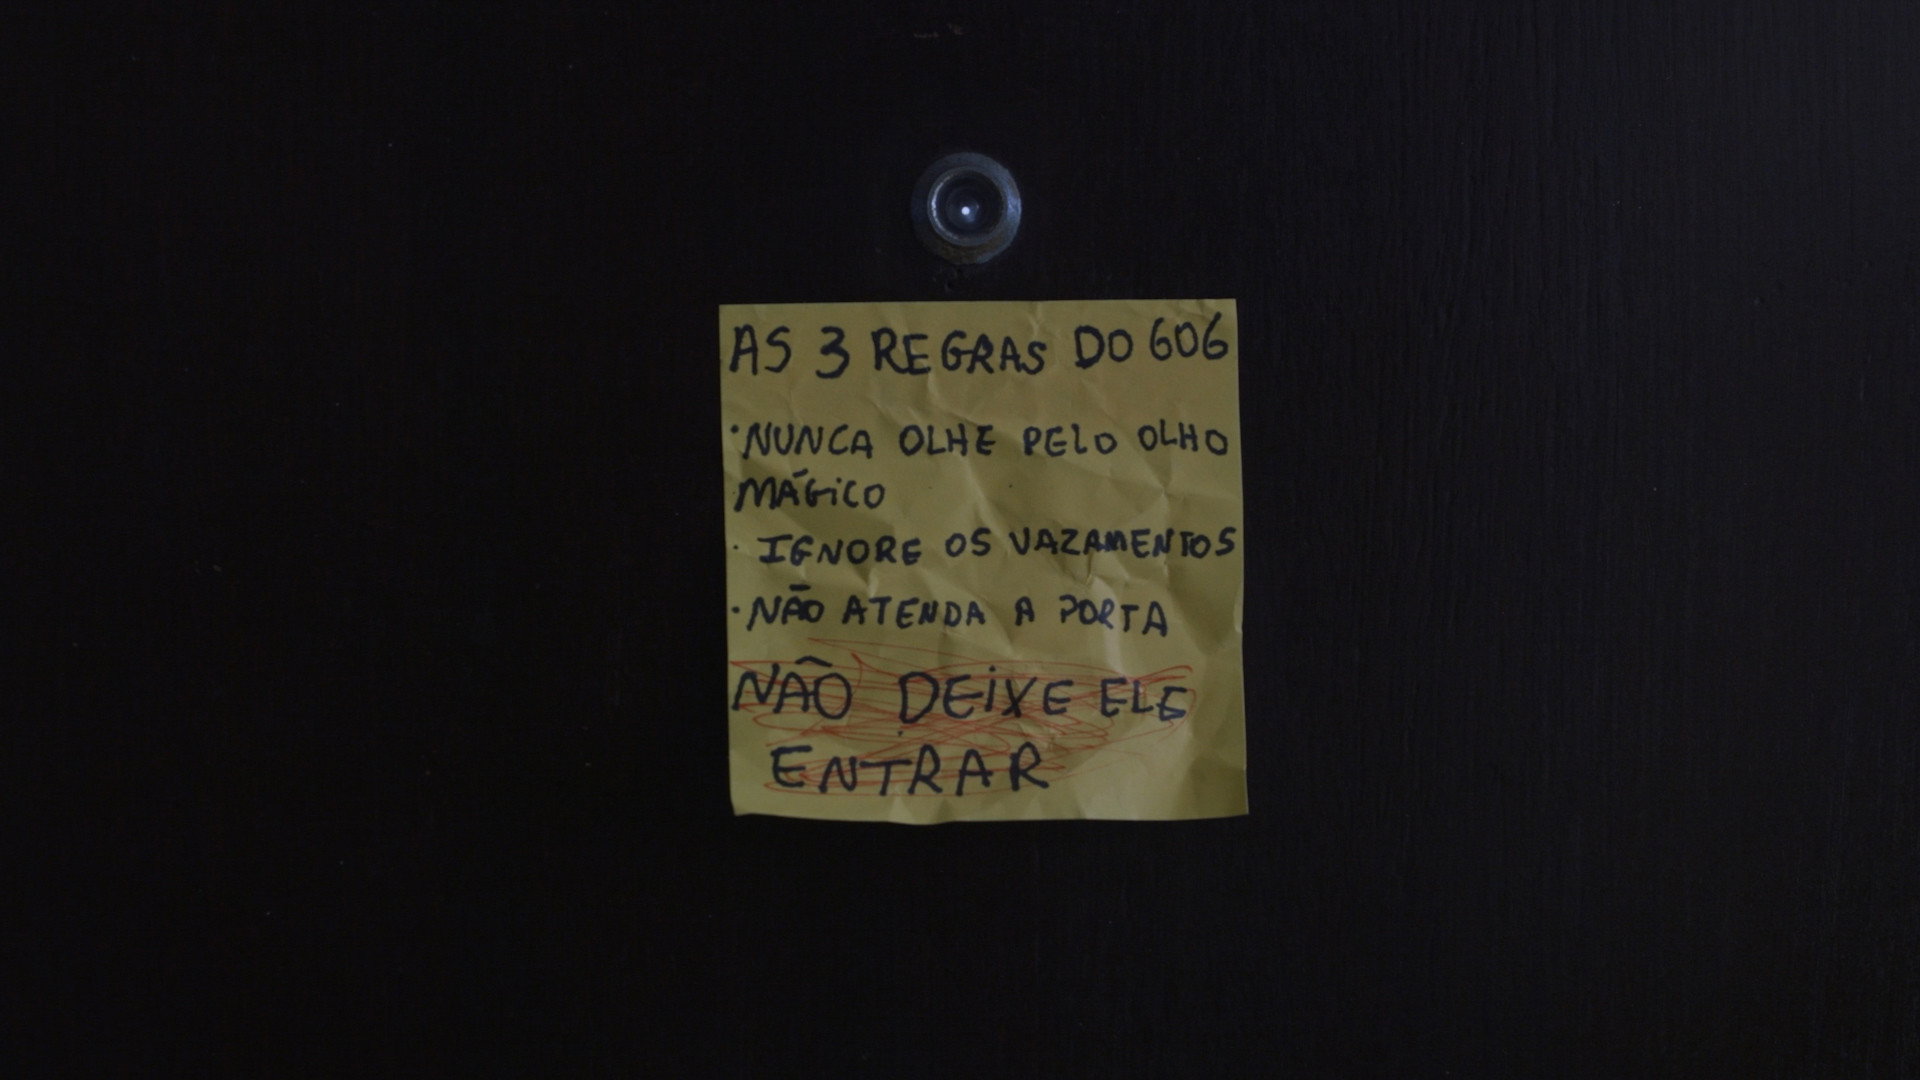 AS 3 REGRAS DO 606
·NUNCA OLHE PELO OLHO
MÁGICO
· IGNORE OS VAZAMENTOS
·NÃO ATENDA A PORTA
NÃO DEIXE ELE
ENTRAR